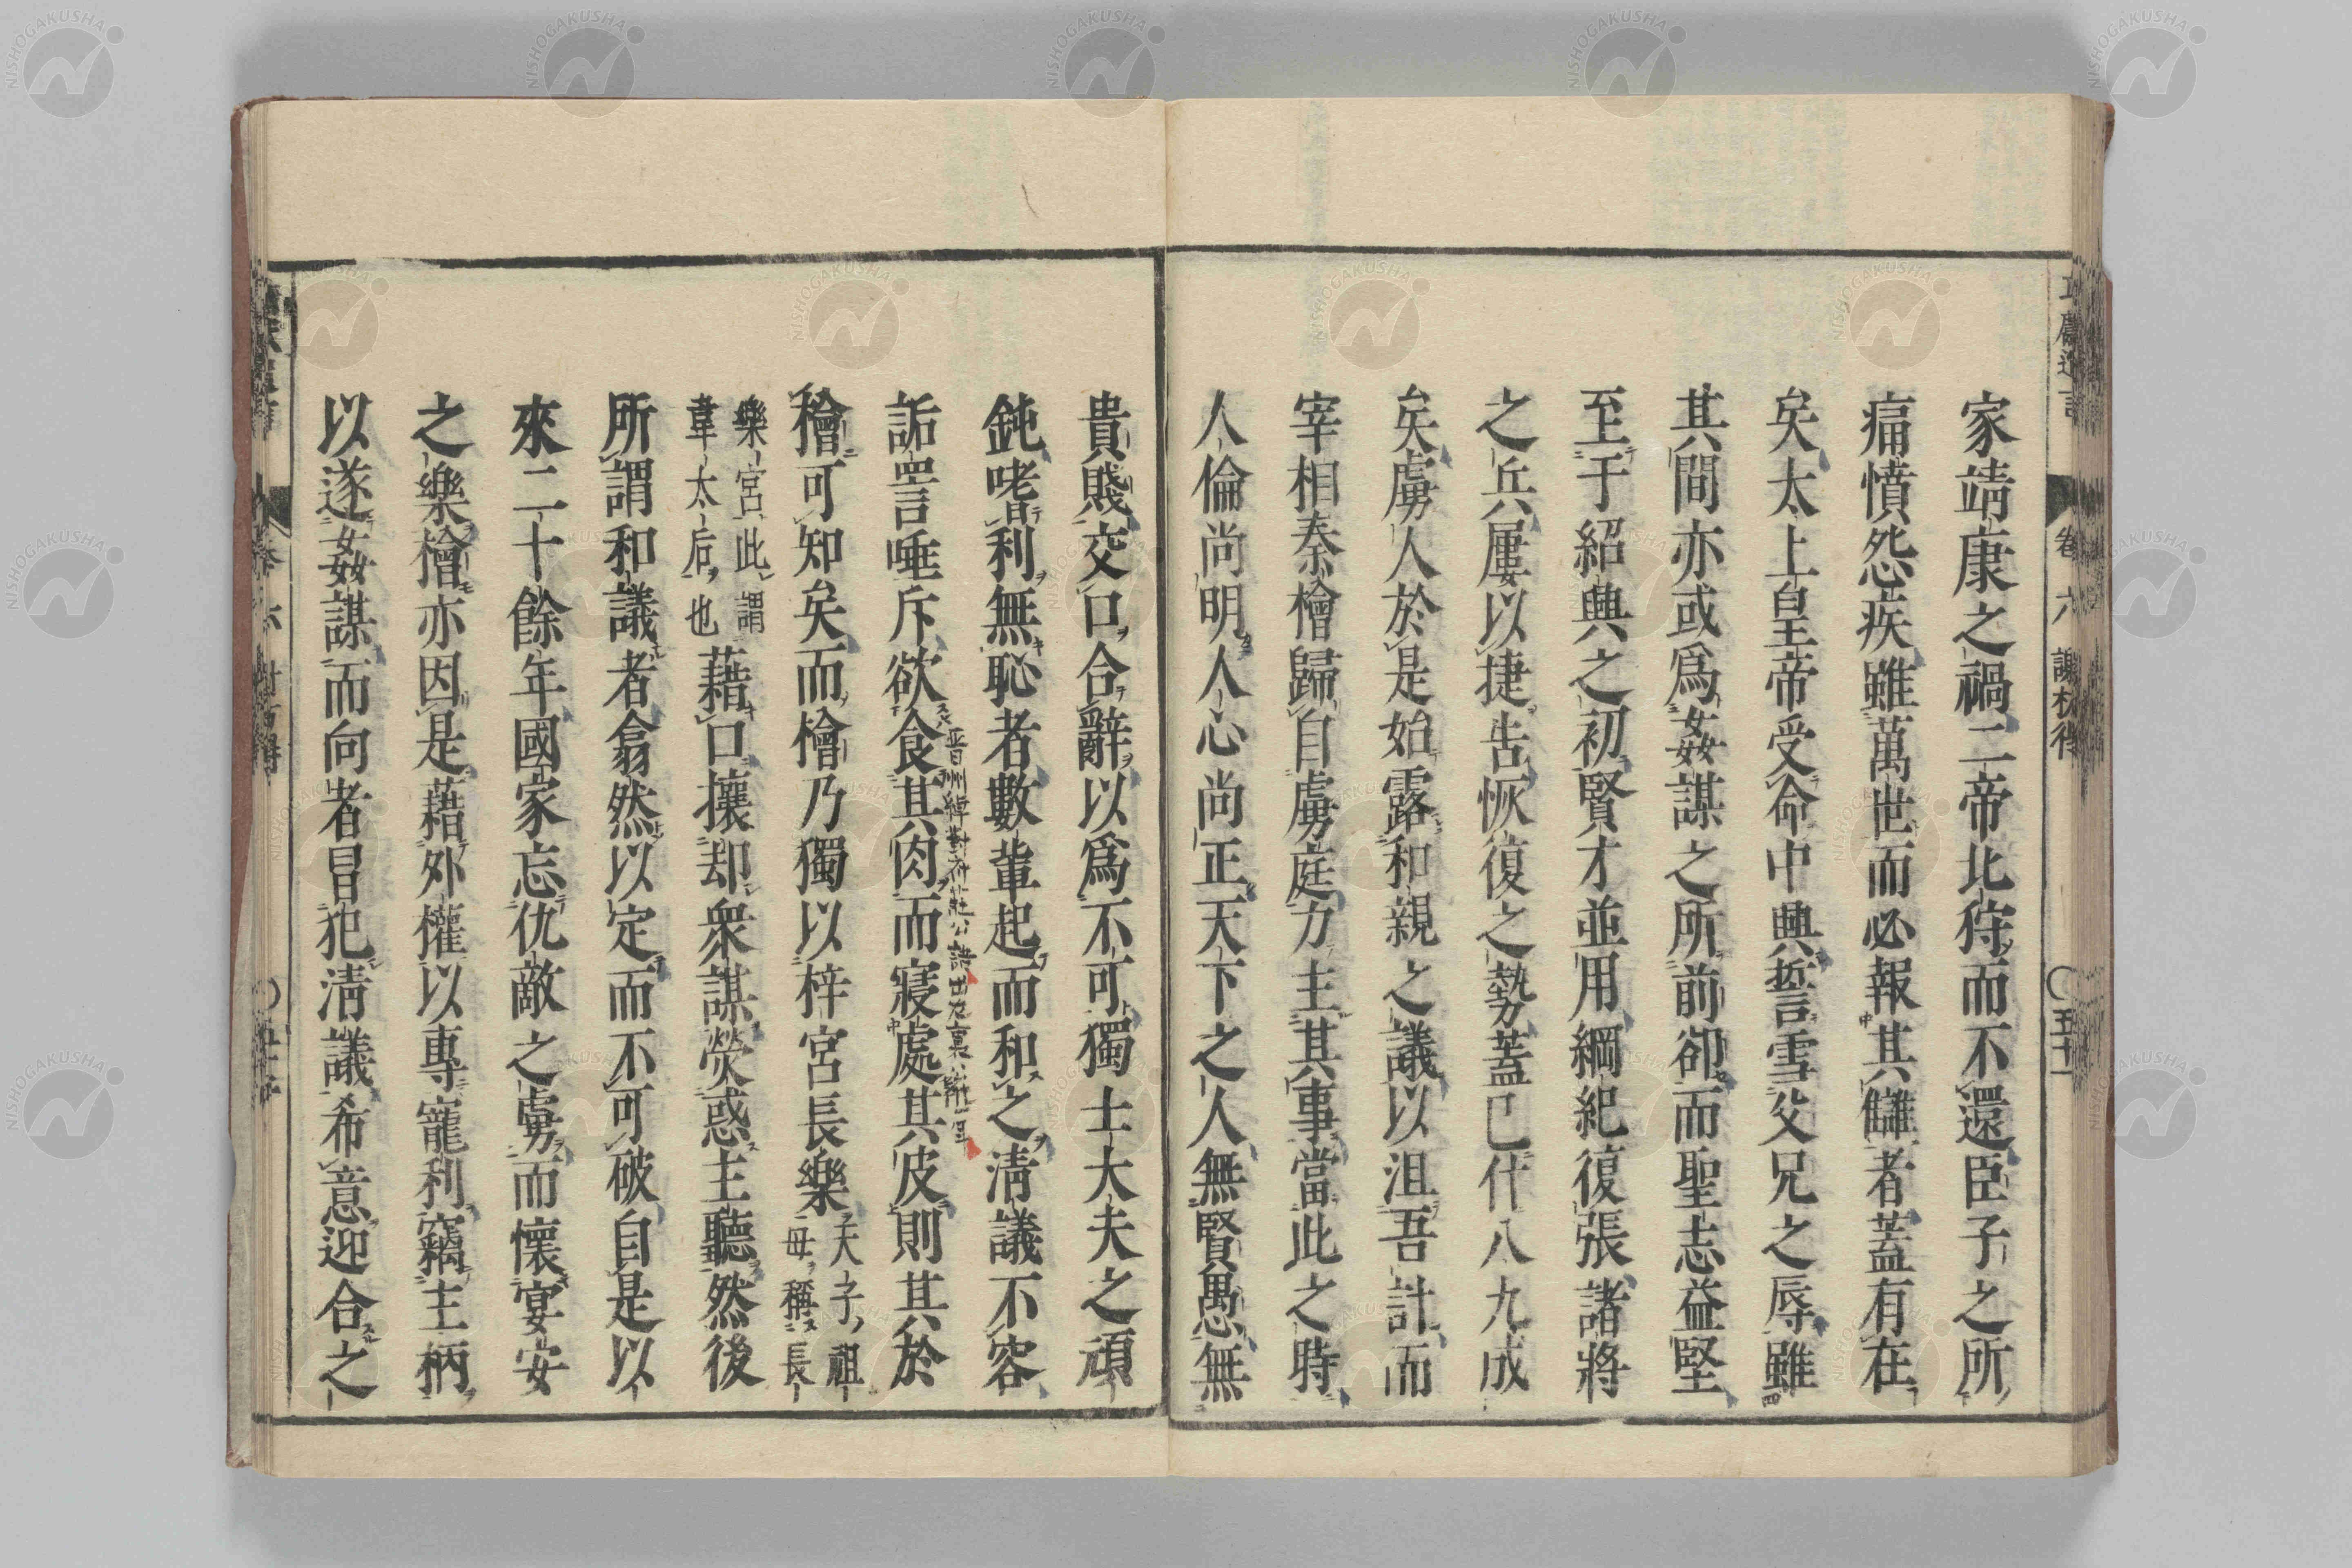 卷六
謝枋得
五十一
家靖康之禍二帝北狩而不還臣子之所
痛憤怨疾雖萬世而必報其讎者蓋有在
矣太上皇帝受命中興誓雪父兄之辱雖
其間亦或爲姦謀之所前卻而聖志益堅
至于紹興之初賢才並用綱紀復張諸將
之兵屢以捷告恢復之勢蓋已什八九成
矣虜人於是始露和親之議以沮吾計而
宰相秦檜歸自虜庭力主其事當此之時
人倫尚明人心尚正天下之人無賢愚無
貴賤交口合辭以爲不可獨士大夫之頑
鈍嗜利無恥者數輩起而和之淸議不容
詬詈唾斥欲食其肉而寢處其皮則其於
檜可知矣而檜乃獨以梓宮長樂天子祖母稱長
樂宮此謂韋太后也藉口攘却衆謀熒惑主聽然後
所謂和議者翕然以定而不可破自是以
來二十餘年國家忘仇敵之虜而懷宴安
之樂檜亦因是藉外權以專寵利竊主柄
以遂姦謀而向者冒犯淸議希意迎合之